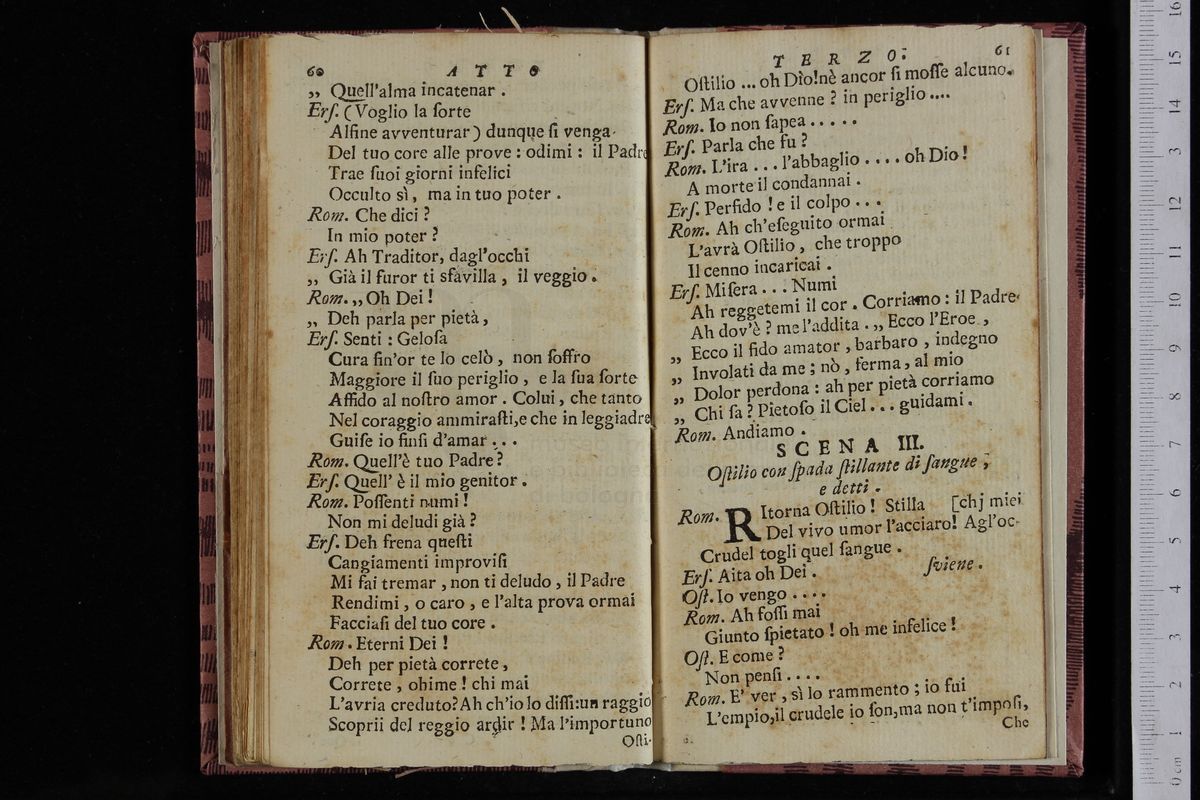 60 ATTO
„ Quell'alma incatenar .
Erſ. (Voglio la ſorte
Alfine avventurar) dunque ſi venga
Del tuo core alle prove : odimi : il Padre
Trae ſuoi giorni infelici
Occulto sì, ma in tuo poter .
Rom. Che dici ?
In mio poter ?
Erſ. Ah Traditor, dagl'occhi
„ Già il furor ti sfavilla , il veggio .
Rom. „ Oh Dei !
„ Deh parla per pietà,
Erſ. Senti : Geloſa
Cura fin'or te lo celò , non ſoffro
Maggiore il ſuo periglio , e la ſua ſorte
Affido al noſtro amor . Colui, che tanto
Nel coraggio ammiraſti,e che in leggiadre
Guiſe io finſi d'amar ...
Rom. Quell'è tuo Padre?
Erſ. Quell' è il mio genitor .
Rom. Poſſenti numi !
Non mi deludi già ?
Erſ. Deh frena queſti
Cangiamenti improviſi
Mi fai tremar , non ti deludo , il Padre
Rendimi , o caro , e l'alta prova ormai
Facciaſi del tuo core .
Rom. Eterni Dei !
Deh per pietà correte ,
Correte , ohime ! chi mai
L'avria creduto?Ah ch'io lo diſſi:un raggio
Scoprii del reggio ardir ! Ma l'importuno
Oſti-
TERZO. 61
Oſtilio ... oh Dìo!nè ancor ſi moſſe alcuno.
Erſ. Ma che avvenne ? in periglio ....
Rom. Io non ſapea .....
Erſ. Parla che fu ?
Rom. L'ira ... l'abbaglio .... oh Dio !
A morte il condannai .
Erſ. Perfido ! e il colpo ...
Rom. Ah ch'eſeguito ormai
L'avrà Oſtilio , che troppo
Il cenno incaricai .
Erſ. Miſera ... Numi
Ah reggetemi il cor . Corriamo : il Padre
Ah dov'è ? me l'addita . „ Ecco l'Eroe ,
„ Ecco il fido amator , barbaro , indegno
„ Involati da me ; nò , ferma , al mio
„ Dolor perdona : ah per pietà corriamo
„ Chi ſa ? Pietoſo il Ciel ... guidami .
Rom. Andiamo .
SCENA III.
Oſtilio con ſpada ſtillante di ſangue ,
e detti .
Rom. RItorna Oſtilio ! Stilla [chj miei
Del vivo umor l'acciaro! Agl'oc-
Crudel togli quel ſangue .
Erſ. Aita oh Dei . ſviene .
Oſt. Io vengo ....
Rom. Ah foſſi mai
Giunto ſpietato ! oh me infelice !
Oſt. E come ?
Non penſi ....
Rom. E' ver , sì lo rammento ; io fui
L'empio,il crudele io ſon,ma non t'impoſi,
Che